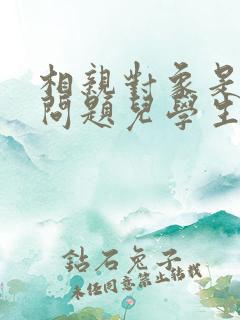 相親對象是
問題兒學生
鈷石兔子
未經同意禁止轉載